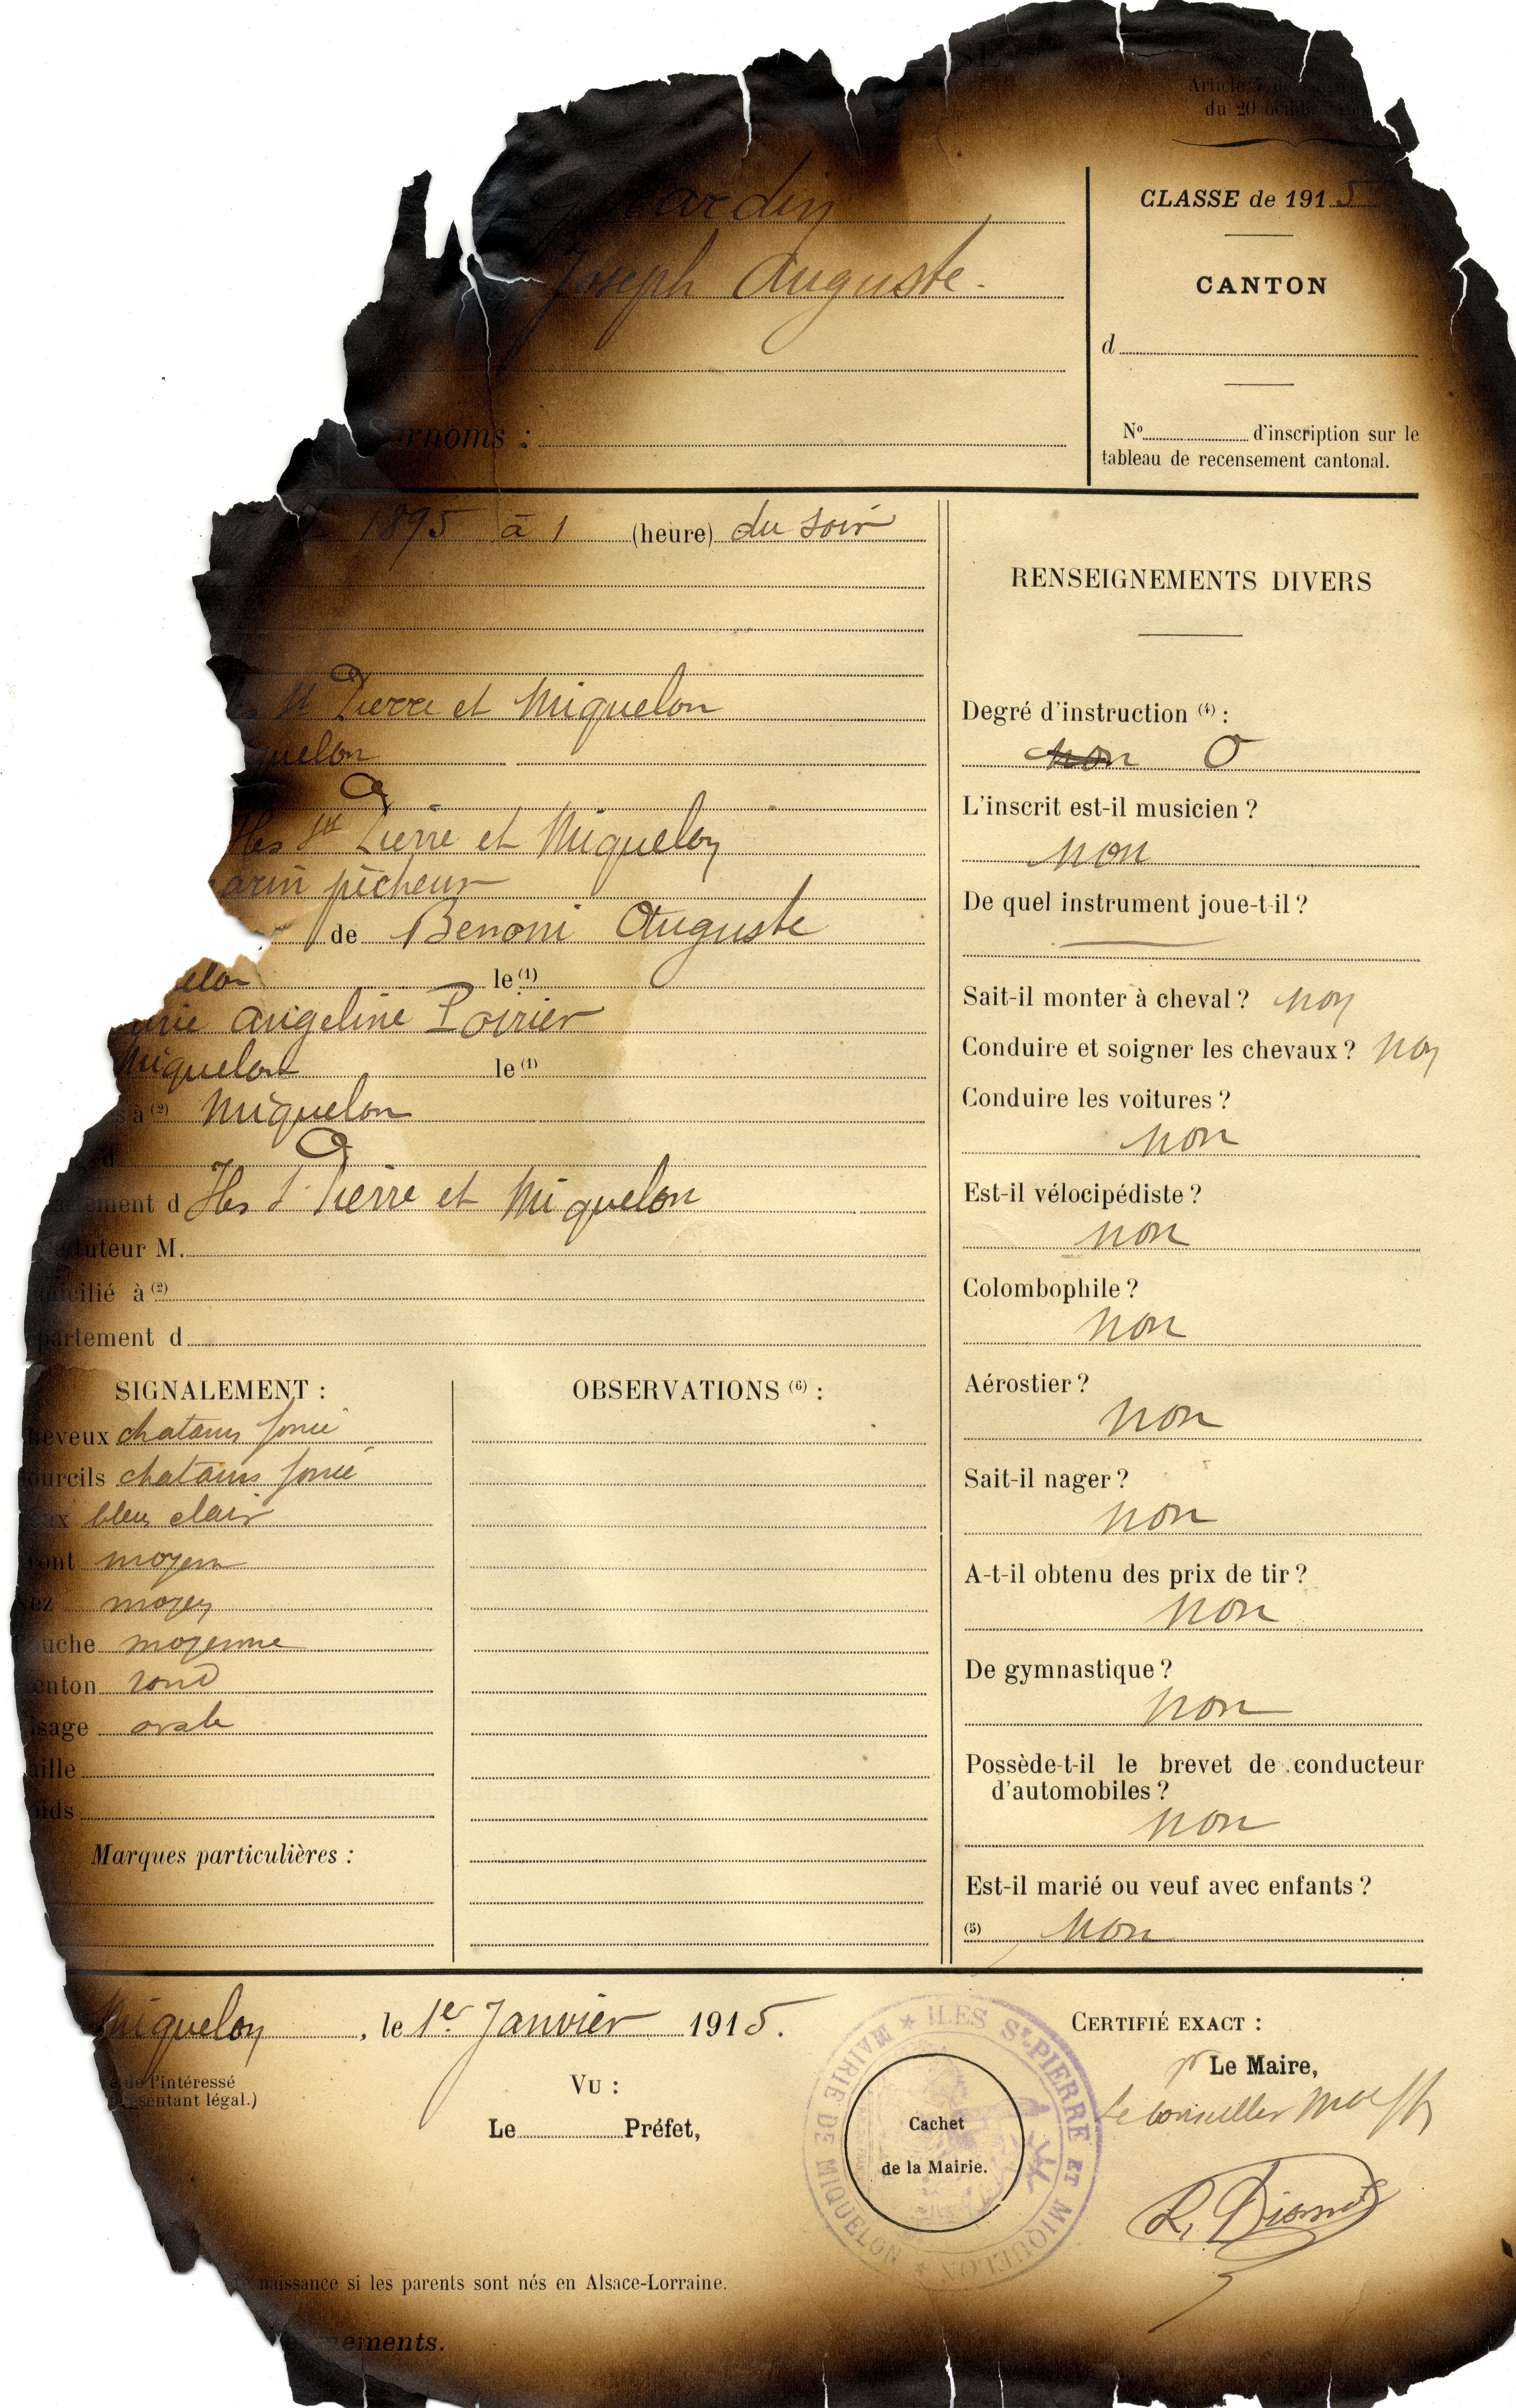 Article
du 20
CLASSE de 1915
ardin
Joseph Auguste.
CANTON
d
Surnoms :
N° d'inscription sur le
tableau de recensement cantonal.
1895 à 1 (heure) du soir
St Pierre et Miquelon
quelon
Iles St Pierre et Miquelon
arin pêcheur
de Benoni Auguste
elon le (1)
Angeline Poirier
Miquelon le (1)
à (2) Miquelon
d
ement d Iles St Pierre et Miquelon
tuteur M.
cilié à (2)
partement d
SIGNALEMENT :
eveux chatains foncé
ourcils chatains foncé
x bleu clair
ont moyen
ez moyen
ouche moyenne
enton rond
isage ovale
aille
oids
Marques particulières :
OBSERVATIONS (6) :
RENSEIGNEMENTS DIVERS
Degré d'instruction (4) :
non 0
L'inscrit est-il musicien ?
non
De quel instrument joue-t-il ?
Sait-il monter à cheval ? non
Conduire et soigner les chevaux ? non
Conduire les voitures ?
non
Est-il vélocipédiste ?
non
Colombophile ?
non
Aérostier ?
non
Sait-il nager ?
non
A-t-il obtenu des prix de tir ?
non
De gymnastique ?
non
Possède-t-il le brevet de conducteur
d'automobiles ?
non
Est-il marié ou veuf avec enfants ?
(5) Non
Miquelon, le 1er Janvier 1915.
de l'intéressé
ésentant légal.)
Vu :
Le Préfet,
ILES St-PIERRE ET MIQUELON
MAIRIE DE MIQUELON
Cachet
de la Mairie.
CERTIFIÉ EXACT :
pr Le Maire,
Le Conseiller
naissance si les parents sont nés en Alsace-Lorraine.
ements.